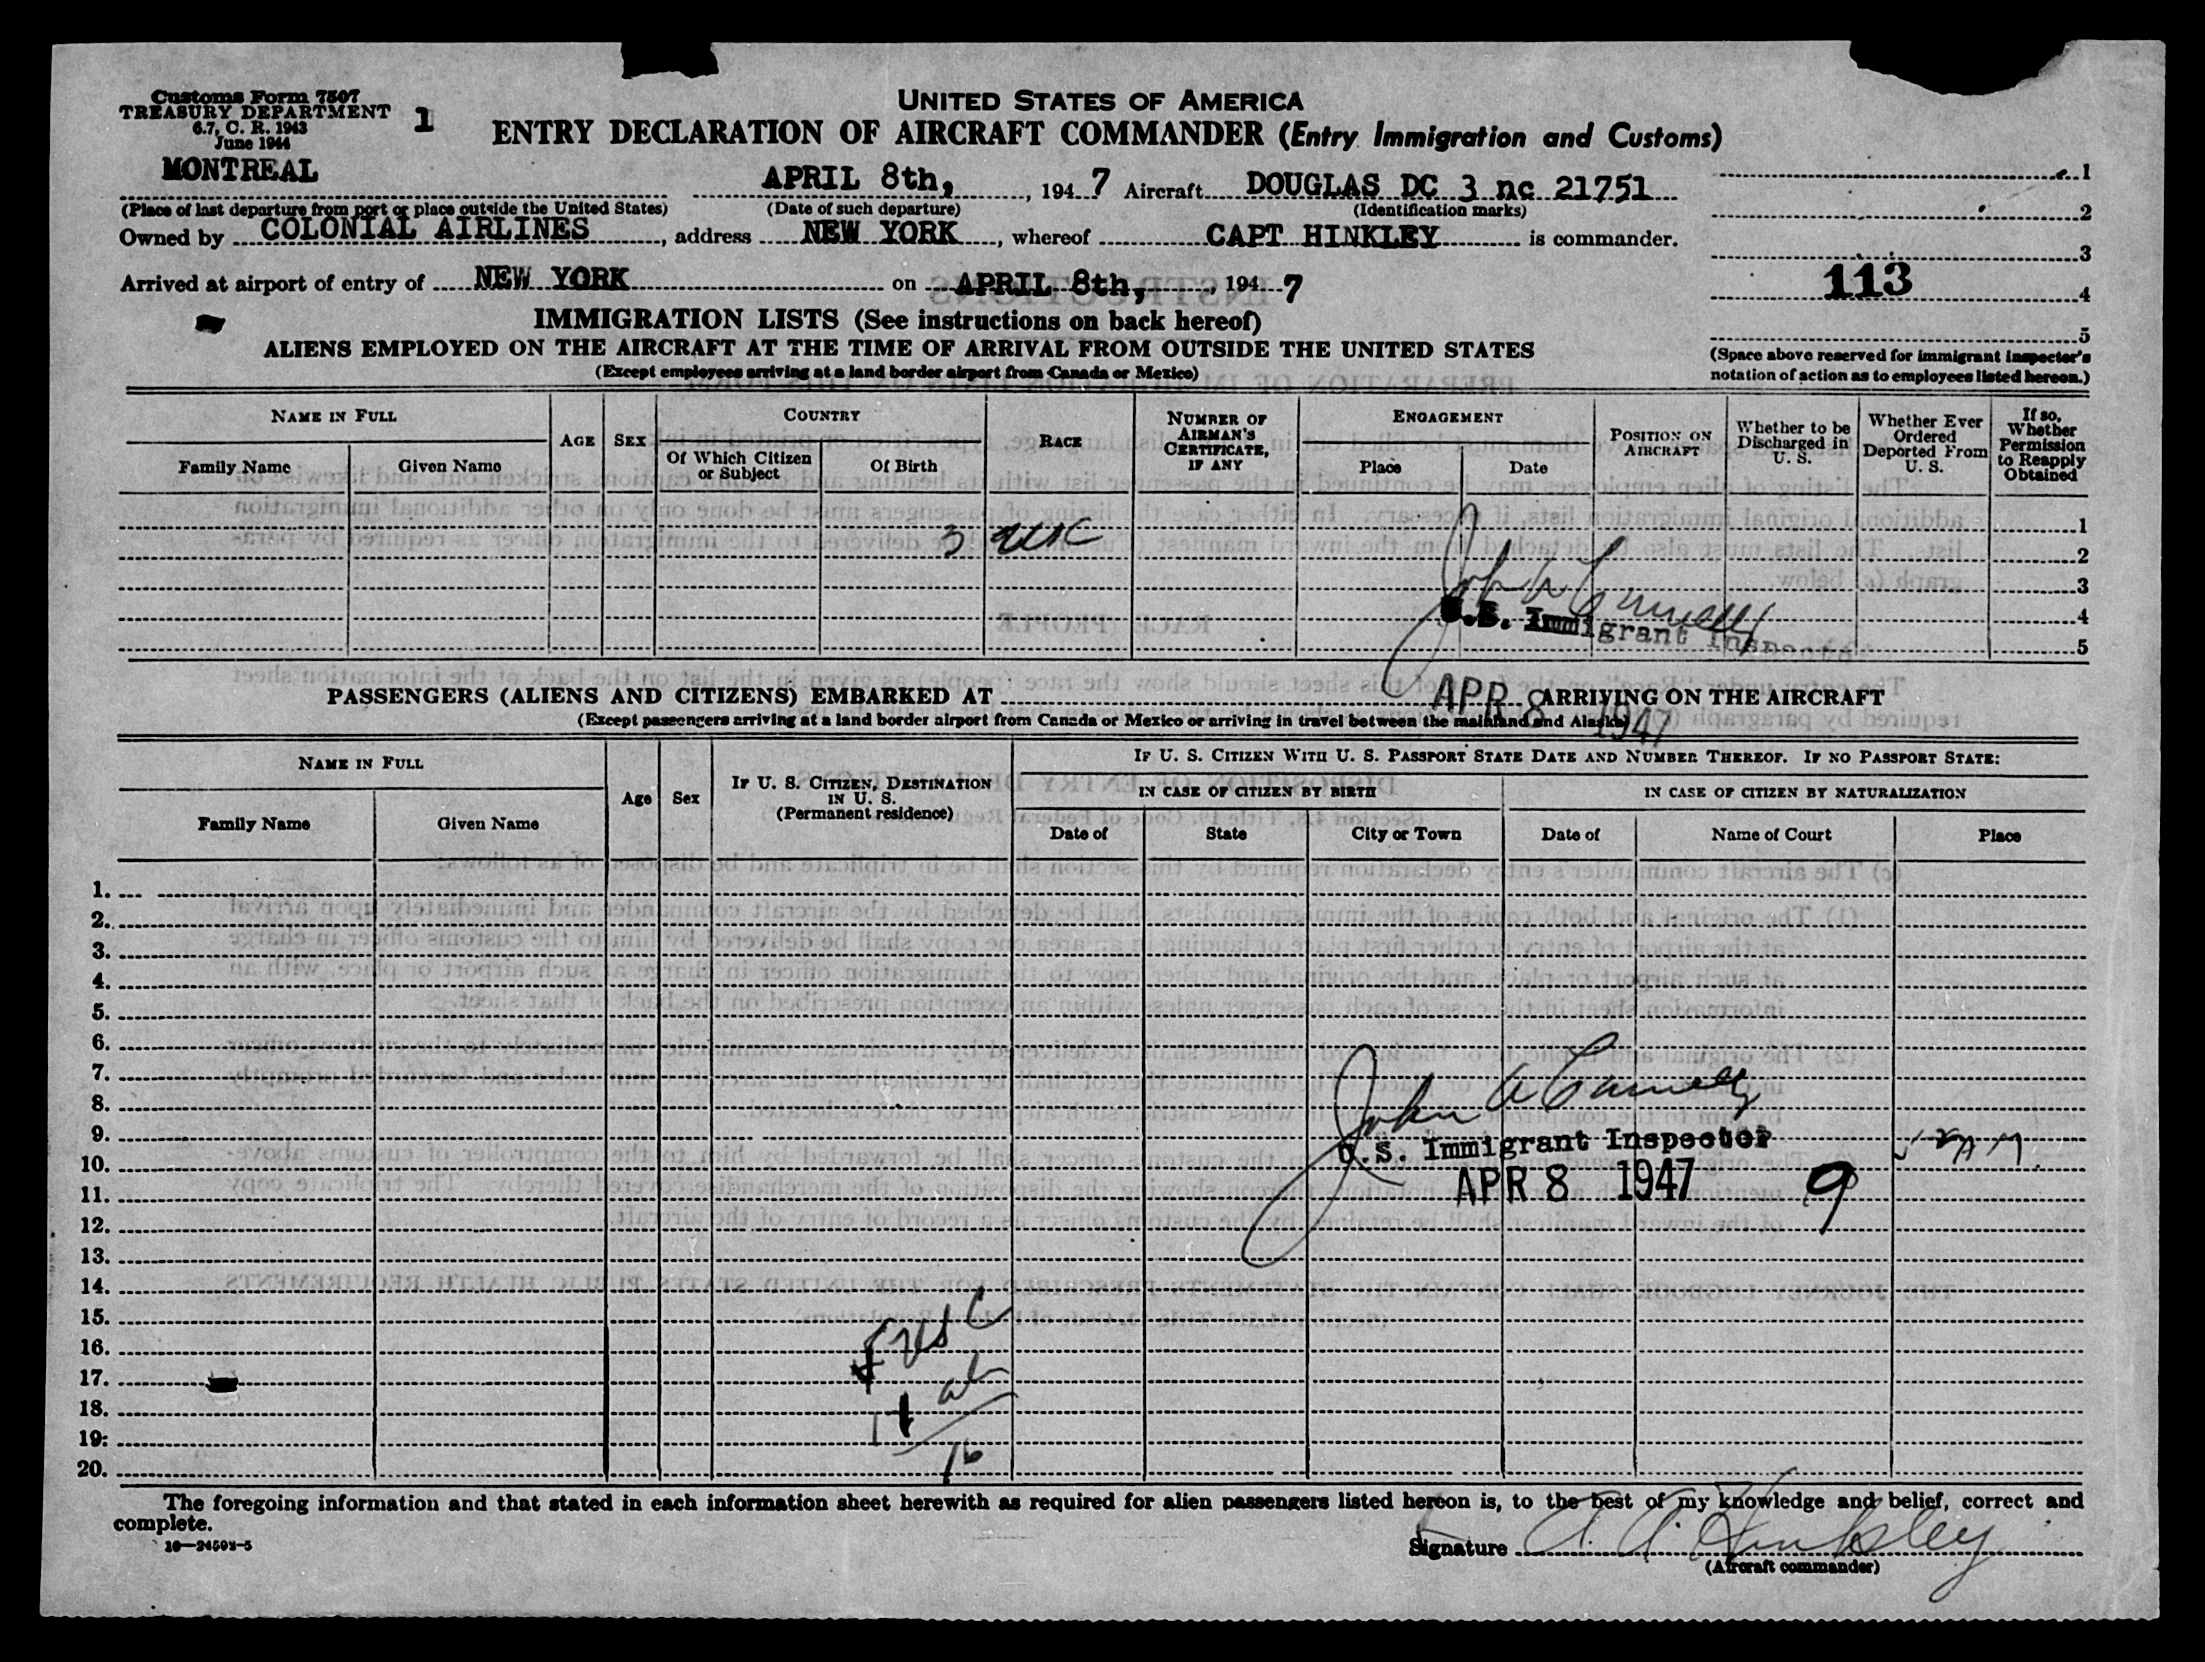 Customs Form 7507
TREASURY DEPARTMENT
6.7, C. R. 1943
June 1944
1
UNITED STATES OF AMERICA
ENTRY DECLARATION OF AIRCRAFT COMMANDER (Entry Immigration and Customs)
MONTREAL APRIL 8th, , 1947 Aircraft DOUGLAS DC 3 nc 21751
(Place of last departure from port or place outside the United States) (Date of such departure) (Identification marks)
Owned by COLONIAL AIRLINES, address NEW YORK, whereof CAPT HINKLEY is commander.
Arrived at airport of entry of NEW YORK on APRIL 8th, , 1947
1
2
3
113
4
5
(Space above reserved for immigrant inspector's
notation of action as to employees listed hereon.)
IMMIGRATION LISTS (See instructions on back hereof)
ALIENS EMPLOYED ON THE AIRCRAFT AT THE TIME OF ARRIVAL FROM OUTSIDE THE UNITED STATES
(Except employees arriving at a land border airport from Canada or Mexico)
NAME IN FULL
Family Name Given Name
AGE SEX
COUNTRY
Of Which Citizen or Subject
Of Birth
RACE
NUMBER OF AIRMAN'S CERTIFICATE, IF ANY
ENGAGEMENT
Place Date
POSITION ON AIRCRAFT
Whether to be Discharged in U. S.
Whether Ever Ordered Deported From U. S.
If so, Whether Permission to Reapply Obtained
1
3 USC
2
3
4
5
U.S. Immigrant Inspector
APR 8 1947
PASSENGERS (ALIENS AND CITIZENS) EMBARKED AT ARRIVING ON THE AIRCRAFT
(Except passengers arriving at a land border airport from Canada or Mexico or arriving in travel between the mainland and Alaska)
NAME IN FULL
Family Name Given Name
Age Sex
IF U. S. CITIZEN, DESTINATION IN U. S.
(Permanent residence)
IF U. S. CITIZEN WITH U. S. PASSPORT STATE DATE AND NUMBER THEREOF. IF NO PASSPORT STATE:
IN CASE OF CITIZEN BY BIRTH IN CASE OF CITIZEN BY NATURALIZATION
Date of State City or Town Date of Name of Court Place
1.
2.
3.
4.
5.
6.
7.
8.
John A
9.
U.S. Immigrant Inspector
10.
APR 8 1947 9
11.
12.
13.
14.
15.
USC
16.
17.
18.
19.
20.
16
The foregoing information and that stated in each information sheet herewith as required for alien passengers listed hereon is, to the best of my knowledge and belief, correct and
complete.
16—24598-5
Signature A. A. Hinkley
(Aircraft commander)